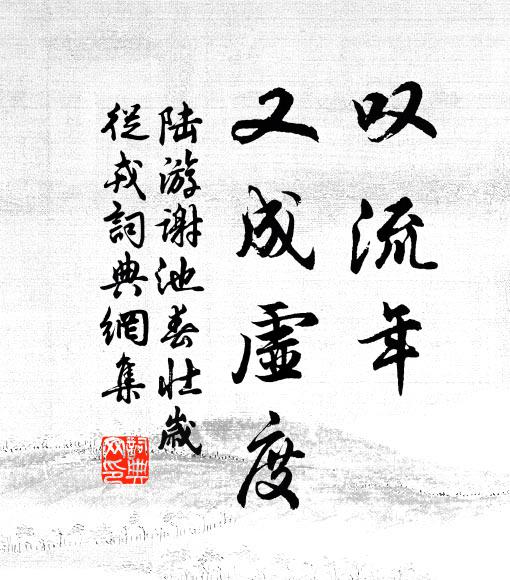 叹流年
又成虚度
陆游谢池春壮岁
从戎詞典網集
詞典
网印